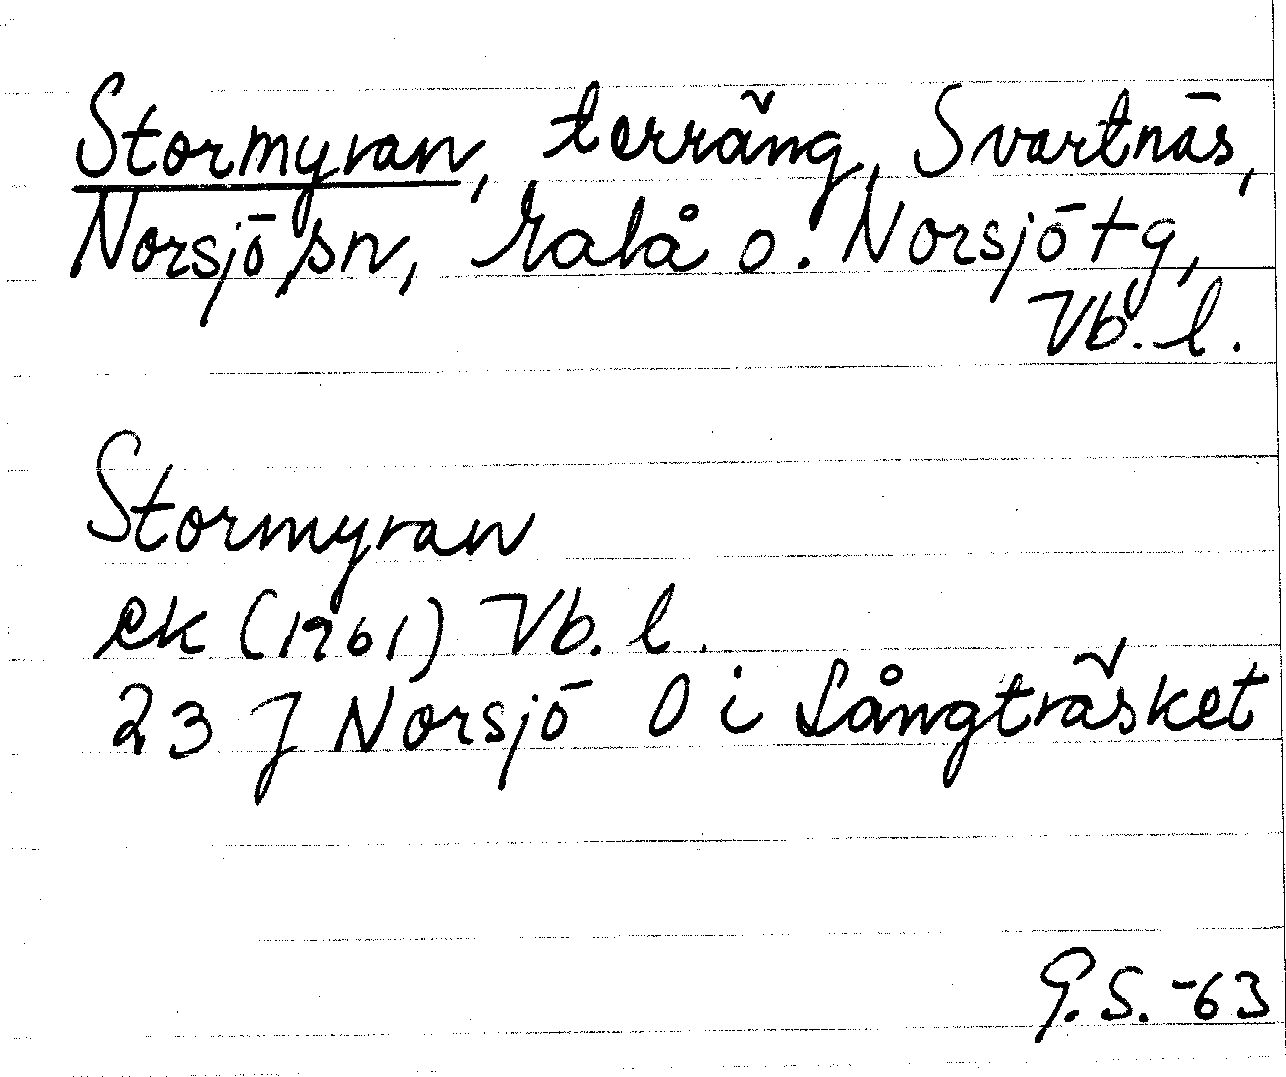 Stormyran, terräng, Svartnäs,
Norsjö sn, Malå o. Norsjö tg,
Vb. l.
Stormyran
ek (1961) Vb. l.
23 J Norsjö O i Långträsket
G.S. -63